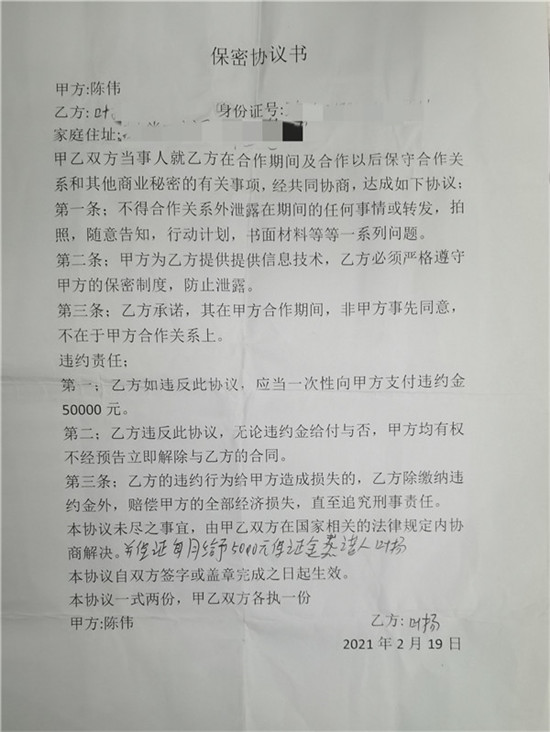 保密协议书
甲方:陈伟
乙方:叶 身份证号:
家庭住址:
甲乙双方当事人就乙方在合作期间及合作以后保守合作关
系和其他商业秘密的有关事项，经共同协商，达成如下协议：
第一条；不得合作关系外泄露在期间的任何事情或转发，拍
照，随意告知，行动计划，书面材料等等一系列问题。
第二条；甲方为乙方提供提供信息技术，乙方必须严格遵守
甲方的保密制度，防止泄露。
第三条；乙方承诺，其在甲方合作期间，非甲方事先同意，
不在于甲方合作关系上。
违约责任；
第一；乙方如违反此协议，应当一次性向甲方支付违约金
50000 元。
第二；乙方违反此协议，无论违约金给付与否，甲方均有权
不经预告立即解除与乙方的合同。
第三条；乙方的违约行为给甲方造成损失的，乙方除缴纳违
约金外，赔偿甲方的全部经济损失，直至追究刑事责任。
本协议未尽之事宜，由甲乙双方在国家相关的法律规定内协
商解决。并保证每月给予5000元保证金 人叶扬
本协议自双方签字或盖章完成之日起生效。
本协议一式两份，甲乙双方各执一份
甲方:陈伟 乙方:叶扬
2021 年 2 月 19 日